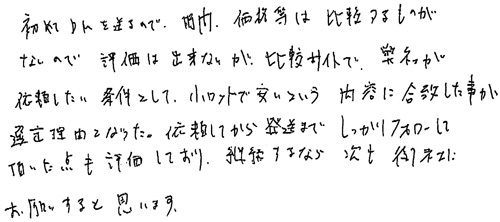 初めてDMを送るので、期間、価格等は比較するものが
ないので評価は出来ないが、比較サイトで、弊社が
依頼したい条件として、小ロットで安いという内容に合致した事が
選定理由となった。依頼してから発送までしっかりフォローして
頂いた点も評価しており、継続するなら次も御社に
お願いすると思います。